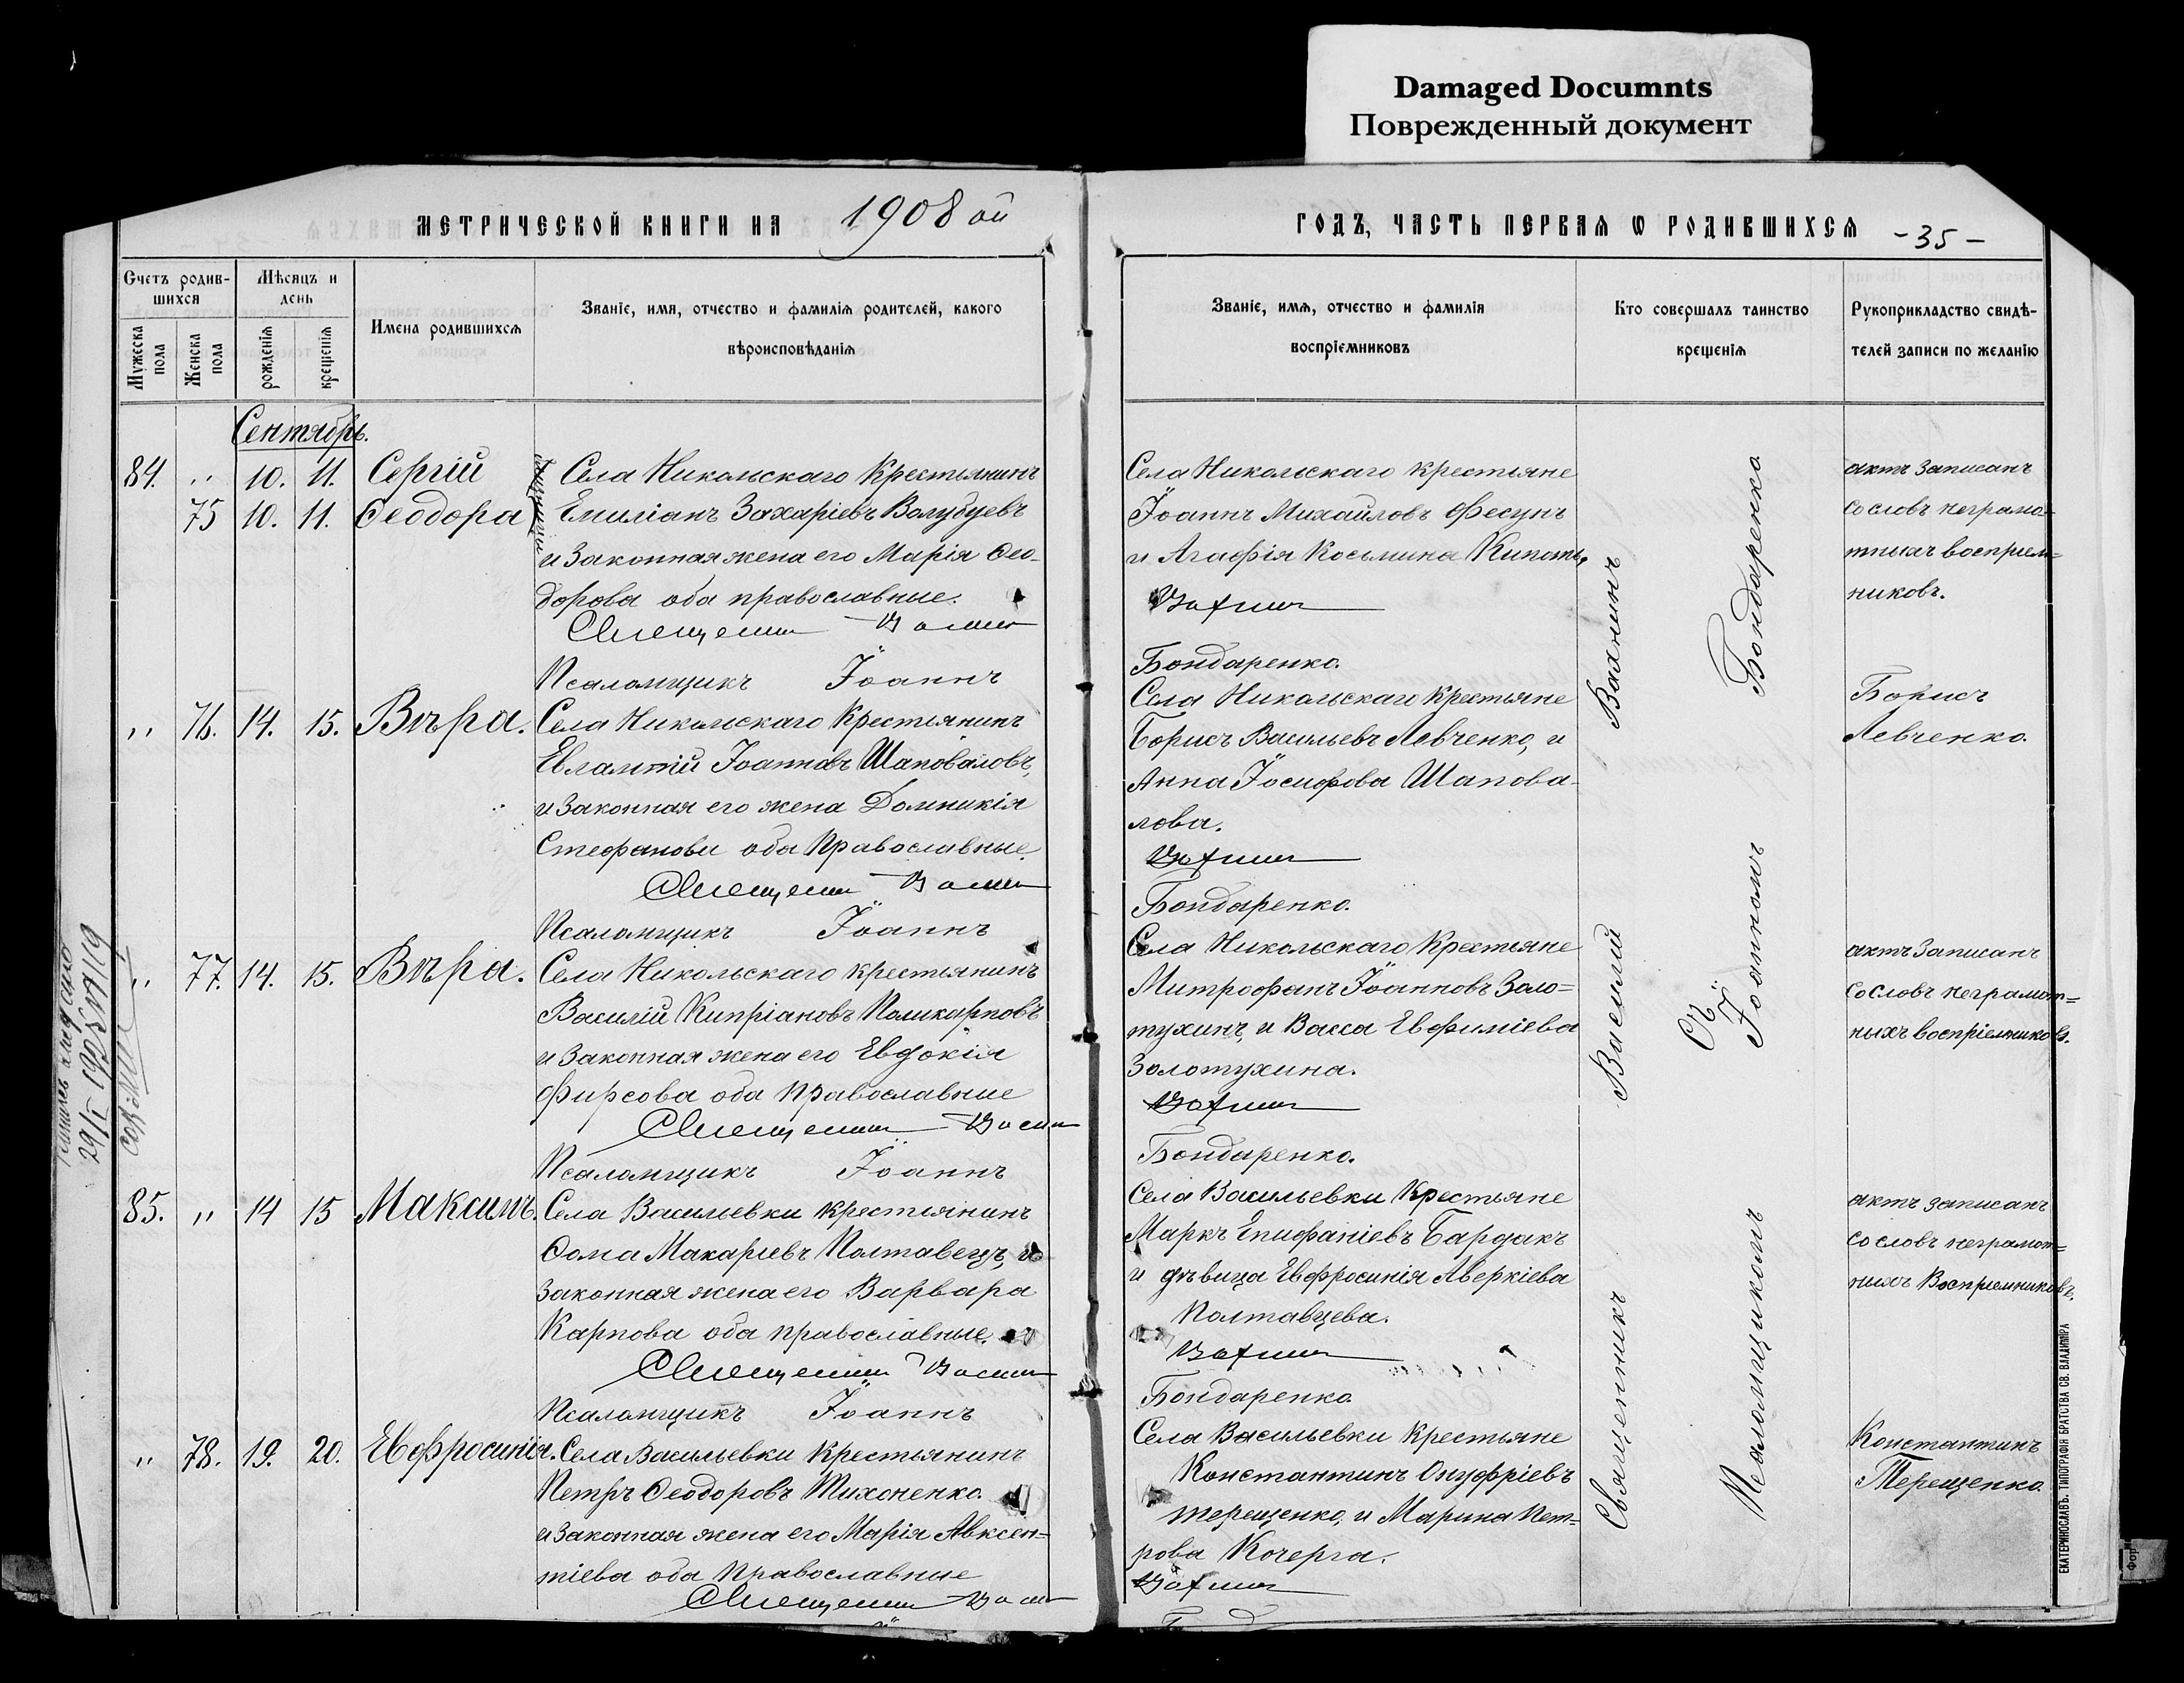 Damaged Documnts
Поврежденный документ
МЕТРИЧЕСКОЙ КНИГИ НА 1908 ой
ГОДЪ, ЧАСТЬ ПЕРВАЯ Ѡ РОДИВШИХСЯ -35-
Счетъ родив-
шихся
Мужеска
пола
Женска
пола
Мѣсяцъ и
день
рожденія
крещенія
Имена родившихся
Званіе, имя, отчество и фамилія родителей, какого
вѣроисповѣданія
Званіе, имя, отчество и фамилія
воспріемниковъ
Кто совершалъ таинство
крещенія
Рукоприкладство свидѣ-
телей записи по желанію
Сентябрь.
84. " 10. 11. Сергій
75 10. 11. Ѳеодора
близнецы
Села Никольскаго Крестьянинъ
Емиліанъ Захаріевъ Волубуевъ
и Законная жена его Марія Ѳео-
дорова оба православные.
Священникъ Василій
Псаломщикъ Іоаннъ
Села Никольскаго крестьяне
Іоаннъ Михайловъ Фесунъ
и Агафія Косьмина
Вахнинъ
Бондаренко.
актъ записанъ
со словъ неграмо=
тныхъ воспріем=
никовъ.
" 76. 14. 15. Вѣра.
Села Никольскаго Крестьянинъ
Евлампій Іоанновъ Шаповаловъ,
и Законная его жена Домникія
Стефанова оба Православные.
Священникъ Василій
Псаломщикъ Іоаннъ
Села Никольскаго Крестьяне
Борисъ Васильевъ Левченко, и
Анна Іосифова Шапова-
лова.
Вахнинъ
Бондаренко.
Борисъ
Левченко.
" 77. 14. 15. Вѣра.
Села Никольскаго крестьянинъ
Василій Кипріановъ Поликарповъ
и Законная жена его Евдокія
Фирсова оба Православные
Священникъ Василій
Псаломщикъ Іоаннъ
Села Никольскаго Крестьяне
Митрофанъ Іоанновъ Золо=
тухинъ, и Васса Евфиміева
Золотухина.
Вахнинъ
Бондаренко.
актъ Записанъ
со словъ неграмот=
ныхъ воспріемниковъ.
85. " 14 15 Максимъ.
Села Васильевки крестьянинъ
Ѳома Макаріевъ Полтавецъ, и
Законная жена его Варвара
Карпова оба православные.
Священникъ Василій
Псаломщикъ Іоаннъ
Села Васильевки Крестьяне
Маркъ Епифаніевъ Бардакъ
и дѣвица Евфросинія Аверкіева
Полтавцева.
Вахнинъ
Бондаренко
актъ записанъ
со словъ неграмот=
ныхъ Воспріемниковъ.
" 78. 19. 20. Евфросинія.
Села Васильевки Крестьянинъ
Петръ Ѳеодоровъ Тихоненко.
и Законная жена его Марія Авксен=
тіева оба Православные
Священникъ Василій
Села Васильевки Крестьяне
Константинъ Онуфріевъ
Терещенко, и Марина Пет=
рова Кочерга.
Вахнинъ
Константинъ
Терещенко.
Священникъ Василій Вахнинъ
Съ
Псаломщикомъ Іоанномъ Бондаренко
ЕКАТЕРИНОСЛАВЪ. ТИПОГРАФІЯ БРАТСТВА СВ. ВЛАДИМІРА